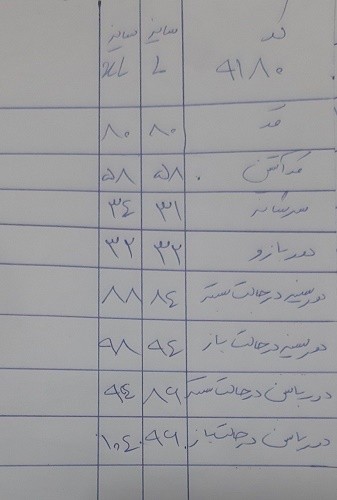 کد سایز سایز
4180 L XL
قد ۸۰ ۸۰
قد آستین ۵۸ ۵۸
سرشانه ۳۱ ۳۴
دور بازو ۳۲ ۳۲
دور سینه در حالت بسته ۸۴ ۸۸
دور سینه در حالت باز ۹۴ ۹۸
دور باسن در حالت بسته ۸۹ ۹۴
دور باسن در حالت باز ۹۹ ۱۰۴